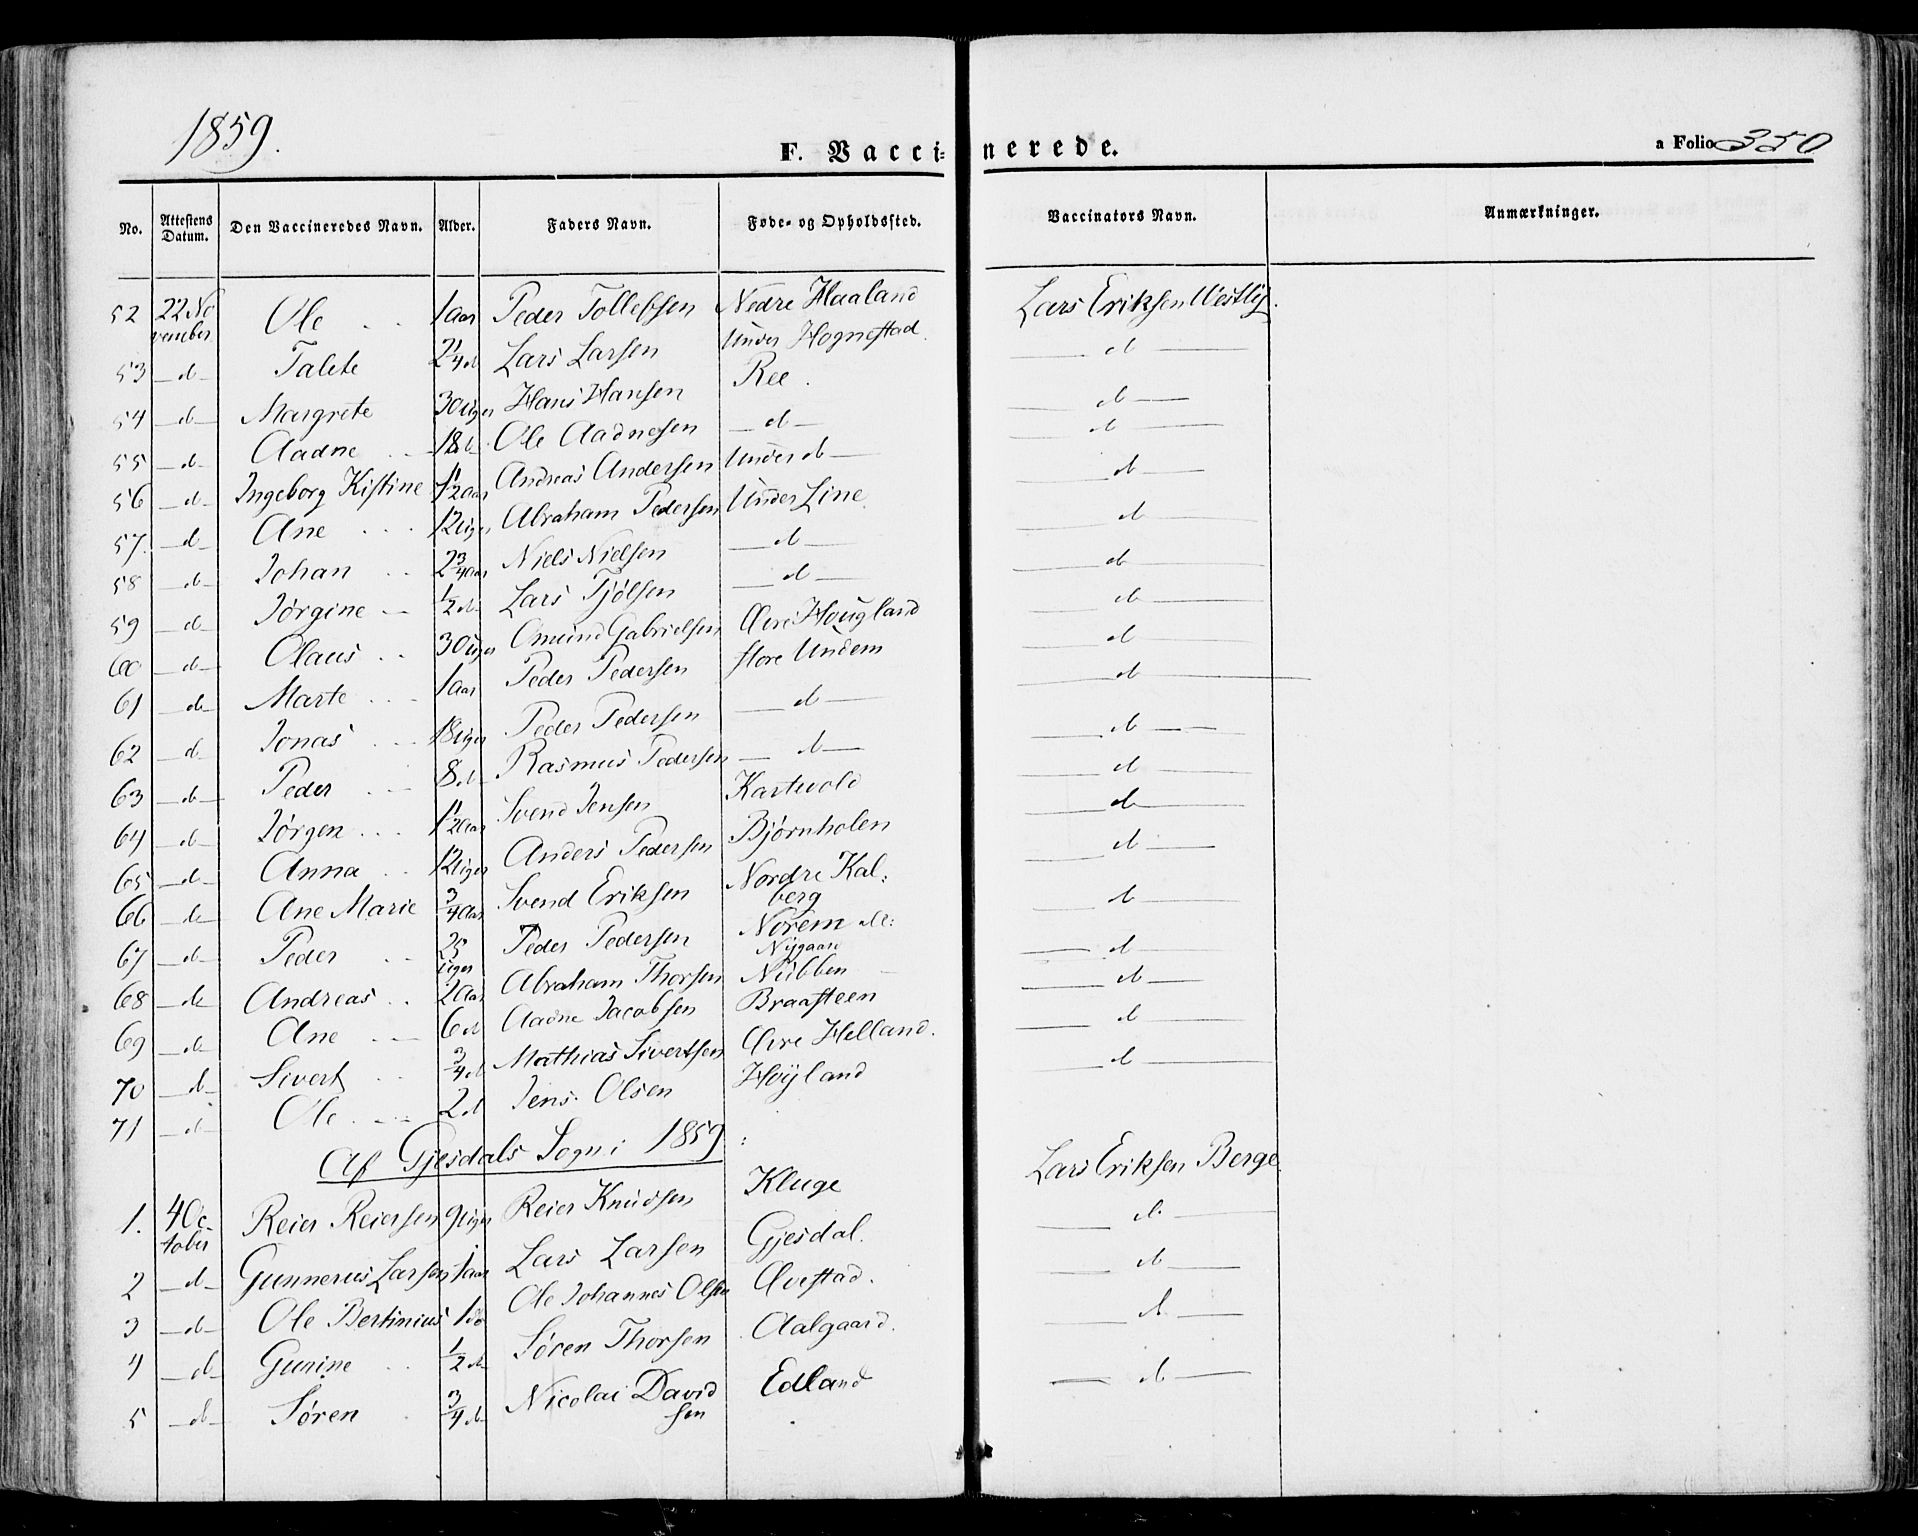 1859.
F. Vaccinerede.
a Folio 350
No. Attestens Datum. Den Vaccineredes Navn. Alder. Faders Navn. Føde- og Opholdssted. Vaccinators Navn. Anmærkninger.
52 22 November Ole 1 aar Peder Tollefsen Nedre Haaland Lars Eriksen Westly.
53 – d – Talete 2 1/4 d Lars Larsen Under Hognestad. – d –
54 – d – Margrete 30 Uger Hans Hansen Ree. – d –
55 – d – Aadne 18 d. Ole Aadnesen – d – – d –
56 – d – Ingeborg Kistine 1 1/2 Aar Andreas Andersen Under d – – d –
57. – d – Ane 12 Uger Abraham Pedersen Under Line – d –
58 – d – Johan 2 3/4 Aar Niels Nielsen – d – – d –
59 – d – Jørgine 1/2 d – Lars Tjølsen – d – – d –
60 – d – Olaus 30 Uger Omund Gabrielsen Øvre Hougland – d –
61 – d – Marte 1 aar Peder Pedersen store Undem – d –
62 – d – Jonas 18 Uger Peder Pedersen – d – – d –
63 – d – Peder 8 d – Rasmus Pedersen – d – – d –
64 – d – Jørgen 1 1/2 Aar Svend Jensen Kartevold – d –
65 – d – Anna 12 Uger Anders Pedersen Bjørnholen – d –
66 – d – Ane Marie 3/4 Aar Svend Eriksen Nordre Kalberg – d –
67 – d – Peder 25 Uger Peder Pedersen Norem Nygaard – d –
68 – d – Andreas 2 Aar Abraham Thorsen Nubben – d –
69 – d – Ane 6 d Aadne Jacobsen Braasteen – d –
70 – d – Sivert 3/4 d Mathias Sivertsen Øvre Helland. – d –
71 – d – Ole 2 d Jens Olsen Høyland
Af Gjesdals Sogn i 1859:
1. 4 October Reier Reiersen 9 Uger Reier Knudsen Kluge Lars Eriksen Berge
2 – d – Gunnerius Larsen 1 aar Lars Larsen Gjesdal. – d –
3 – d – Ole Bertinius 1 do Ole Johannes Olsen Øvestad. – d –
4 – d – Gunine 1/2 d – Søren Thorsen Aalgaard. – d –
5 – d – Søren 3/4 d – Nicolai Davidsen Edland – d –